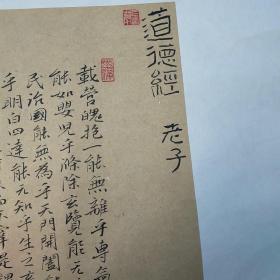 道德經
老子
載營魄抱一能無離乎專氣
能如嬰兒乎滌除玄覽能无
民治國能無為乎天門開闔能
乎明白四達能无知乎生之